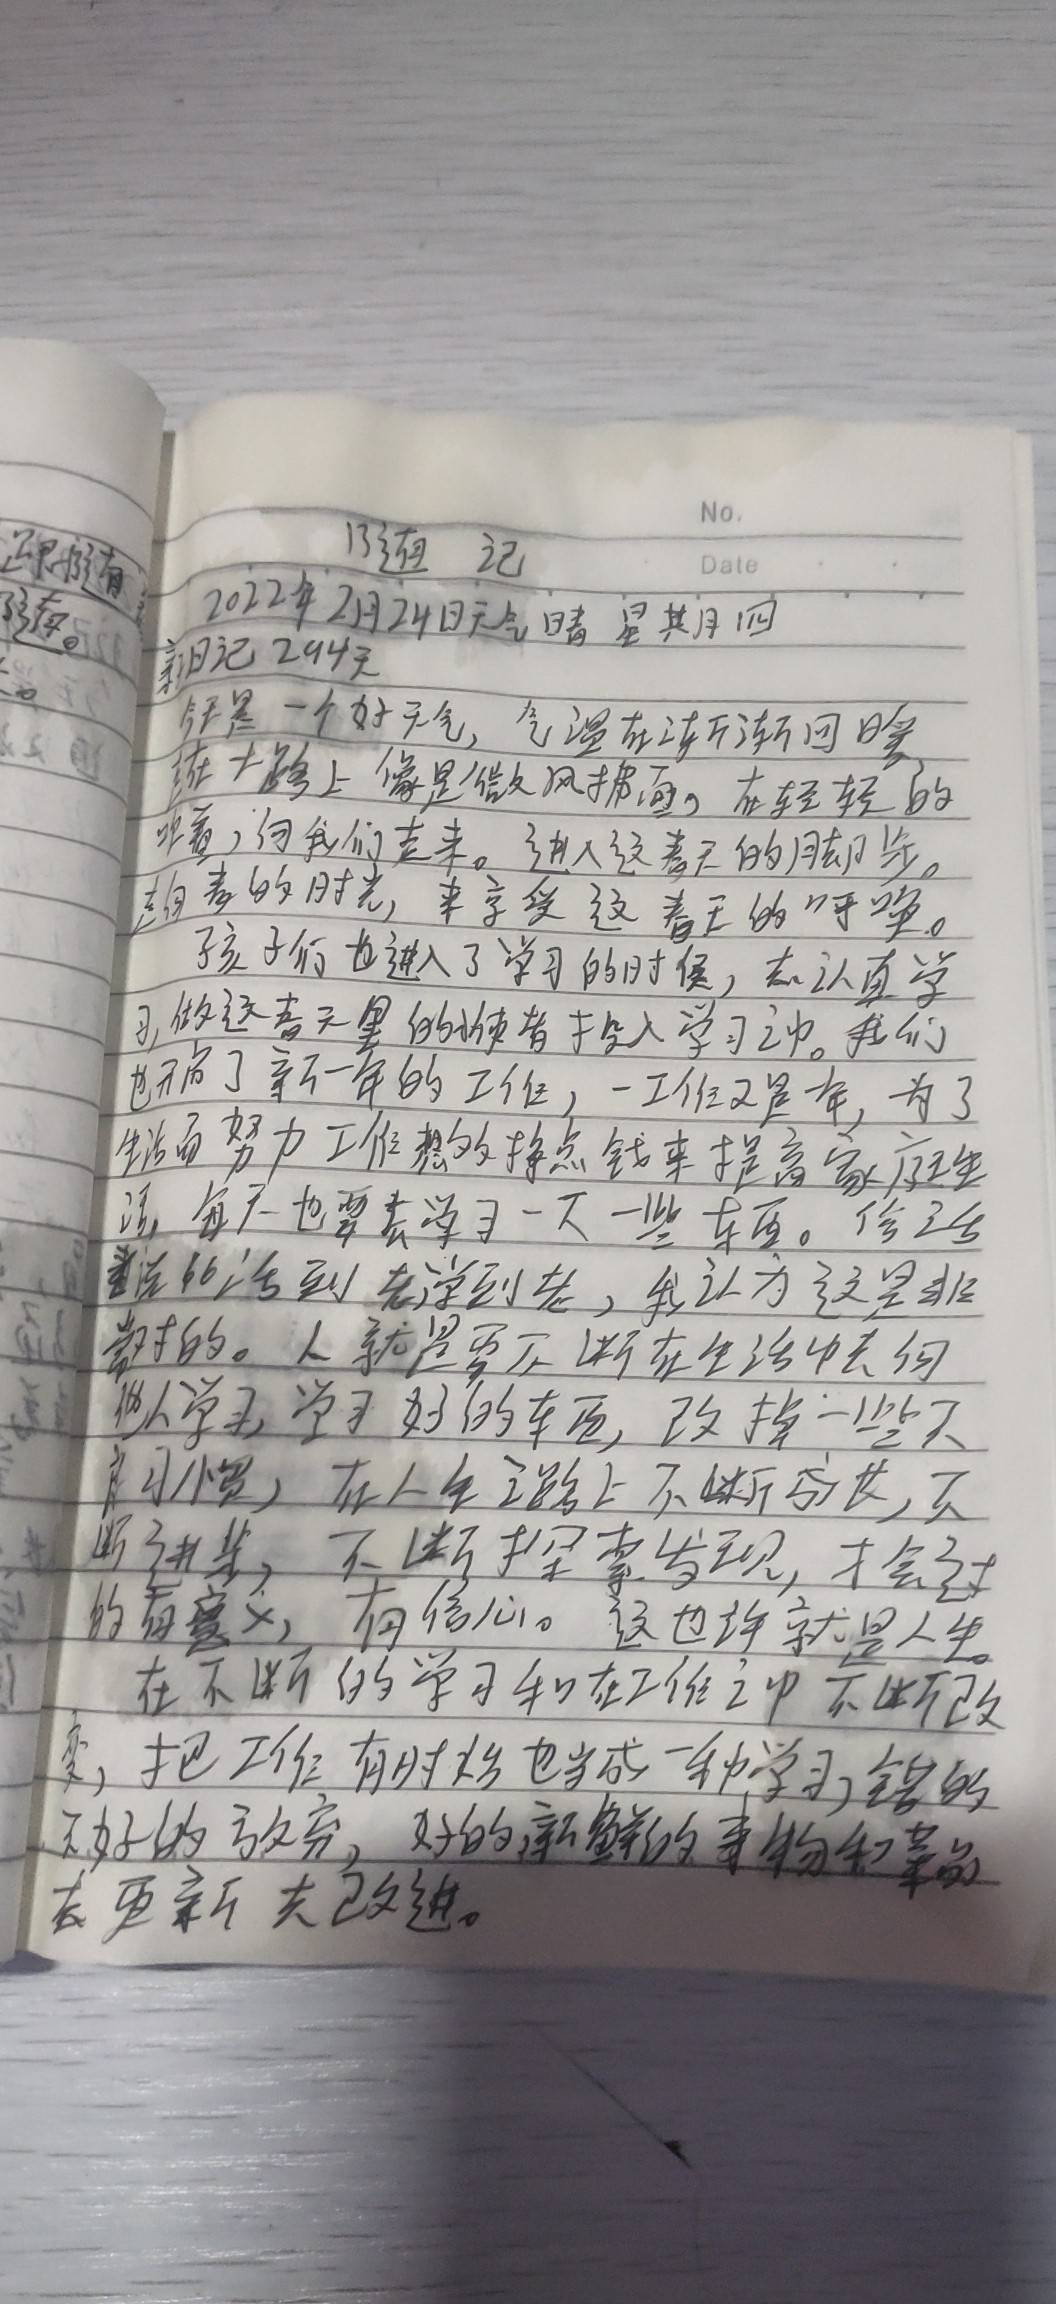 No.
随记
Date
2022年2月24日天气晴 星期四
亲日记294天
今天是一个好天气,气温在渐渐回暖
走在大路上像是微风拂面。在轻轻的
吹着,向我们走来。进入这春天的脚步。
走向春的时光,来享受这春天的呼唤。
孩子们也进入了学习的时候,去认真学
习,做这春天里的小使者投入学习之中。我们
也开启了新一年的工作,一工作又是一年,为了
生活而努力工作想的挣点钱来提高家庭生
活,每天也要去学习一下一些东西。俗话
说的活到老学到老,我认为这是非
常对的。人就是要不断在生活中去向
他人学习,学习好的东西,改掉一些不
良习惯,在人生之路上不断成长,不
断进步,不断探索发现,才会过
的有意义,有信心。这也许就是人生。
在不断的学习和在工作之中不断改
变,把工作有时候也当成一种学习,错的
不好的放弃,好的新鲜的事物和革新
去更新去改进。